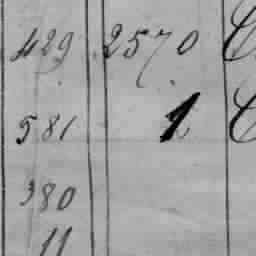 429 2570
581 1
380
11